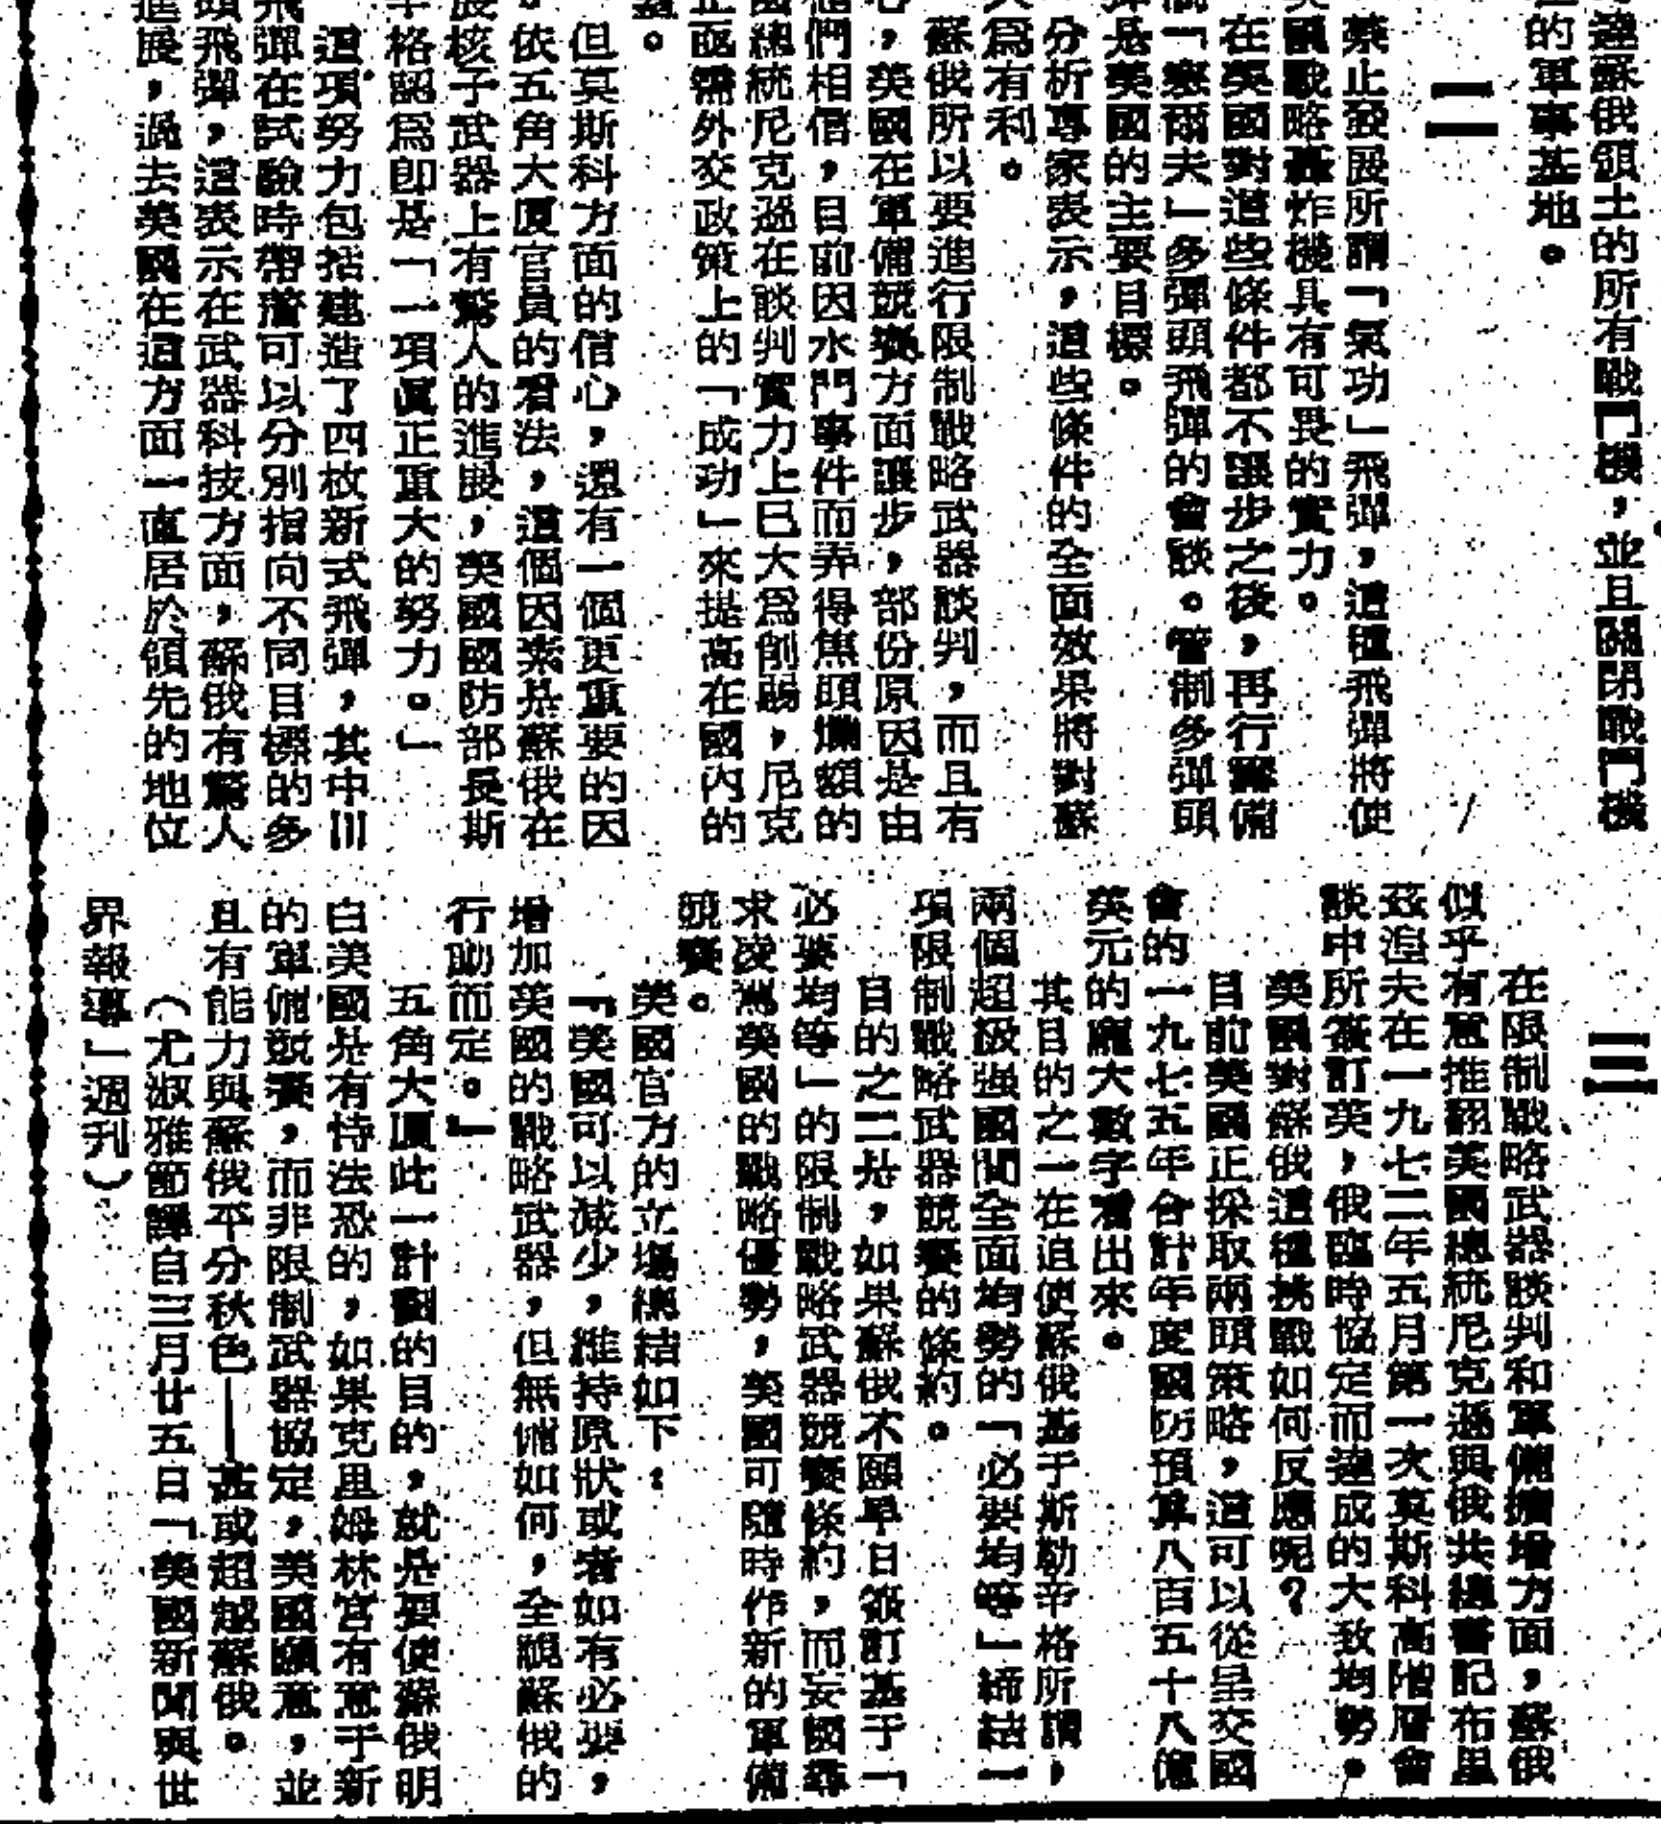 達蘇俄領土的所有戰鬥機，並且關閉戰鬥機
的軍事基地。
二
禁止發展所謂「氣功」飛彈，這種飛彈將使
美國戰略轟炸機具有可畏的實力。
在美國對這些條件都不讓步之後，再行籌備
制「寒爾夫」多彈頭飛彈的會談。管制多彈頭
彈是美國的主要目標。
分析專家表示，這些條件的全面效果將對蘇
大為有利。
蘇俄所以要進行限制戰略武器談判，而且有
心，美國在軍備競賽方面讓步，部份原因是由
他們相信，目前因水門事件而弄得焦頭爛額的
國總統尼克遜在談判實力上已大為削弱，尼克
正亟需外交政策上的「成功」來提高在國內的
。
但莫斯科方面的信心，還有一個更重要的因
。依五角大廈官員的看法，這個因素是蘇俄在
展核子武器上有驚人的進展，美國國防部長斯
辛格認為即是「一項真正重大的努力。」
這項努力包括建造了四枚新式飛彈，其中川
飛彈在試驗時帶著可以分別指向不同目標的多
頭飛彈，這表示在武器科技方面，蘇俄有驚人
進展，過去美國在這方面一直居於領先的地位
三
在限制戰略武器談判和軍備擴增方面，蘇俄
似乎有意推翻美國總統尼克遜與俄共總書記布里
茲湼夫在一九七二年五月第一次莫斯科高階層會
談中所簽訂美，俄臨時協定而達成的大致均勢。
美國對蘇俄這種挑戰如何反應呢？
目前美國正採取兩頭策略，這可以從呈交國
會的一九七五年會計年度國防預算八百五十八億
美元的龐大數字看出來。
其目的之一在迫使蘇俄基于斯勒辛格所謂，
兩個超級強國間全面均勢的「必要均等」締結一
項限制戰略武器競賽的條約。
目的之二是，如果蘇俄不願早日簽訂基于「
必要均等」的限制戰略武器競賽條約，而妄圖尋
求凌駕美國的戰略優勢，美國可隨時作新的軍備
競賽。
美國官方的立場總結如下：
『美國可以減少，維持原狀或者如有必要，
增加美國的戰略武器，但無備如何，全視蘇俄的
行動而定。』
五角大廈此一計劃的目的，就是要使蘇俄明
白美國是有恃法恐的，如果克里姆林宮有意于新
的軍備競賽，而非限制武器協定，美國願意，並
且有能力與蘇俄平分秋色——甚或超越蘇俄。
（尤淑雅節譯自三月廿五日「美國新聞與世
界報導」週刊）